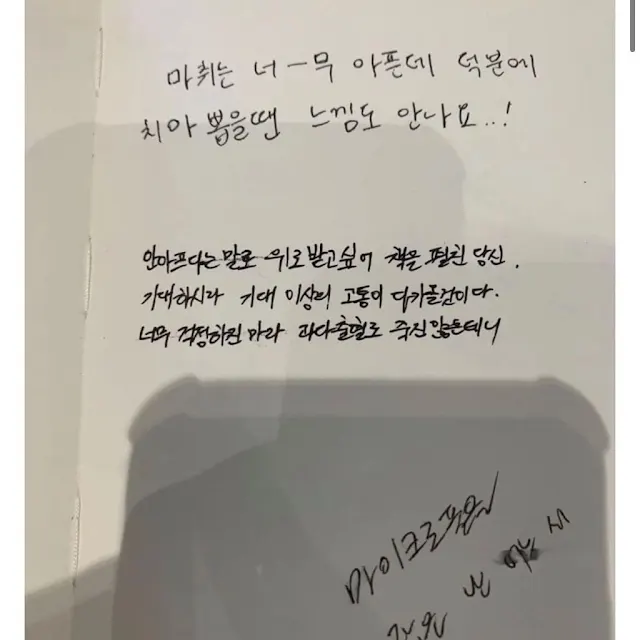 마취는 너-무 아픈데 덕분에
치아 뽑을땐 느낌도 안나요..!
안아프다는 말로 위로받고싶어 책을 펼친 당신.
기대하시라 기대 이상의 고통이 다가올것이다.
너무 걱정하진 마라 과다출혈로 죽진않을테니
마이크로